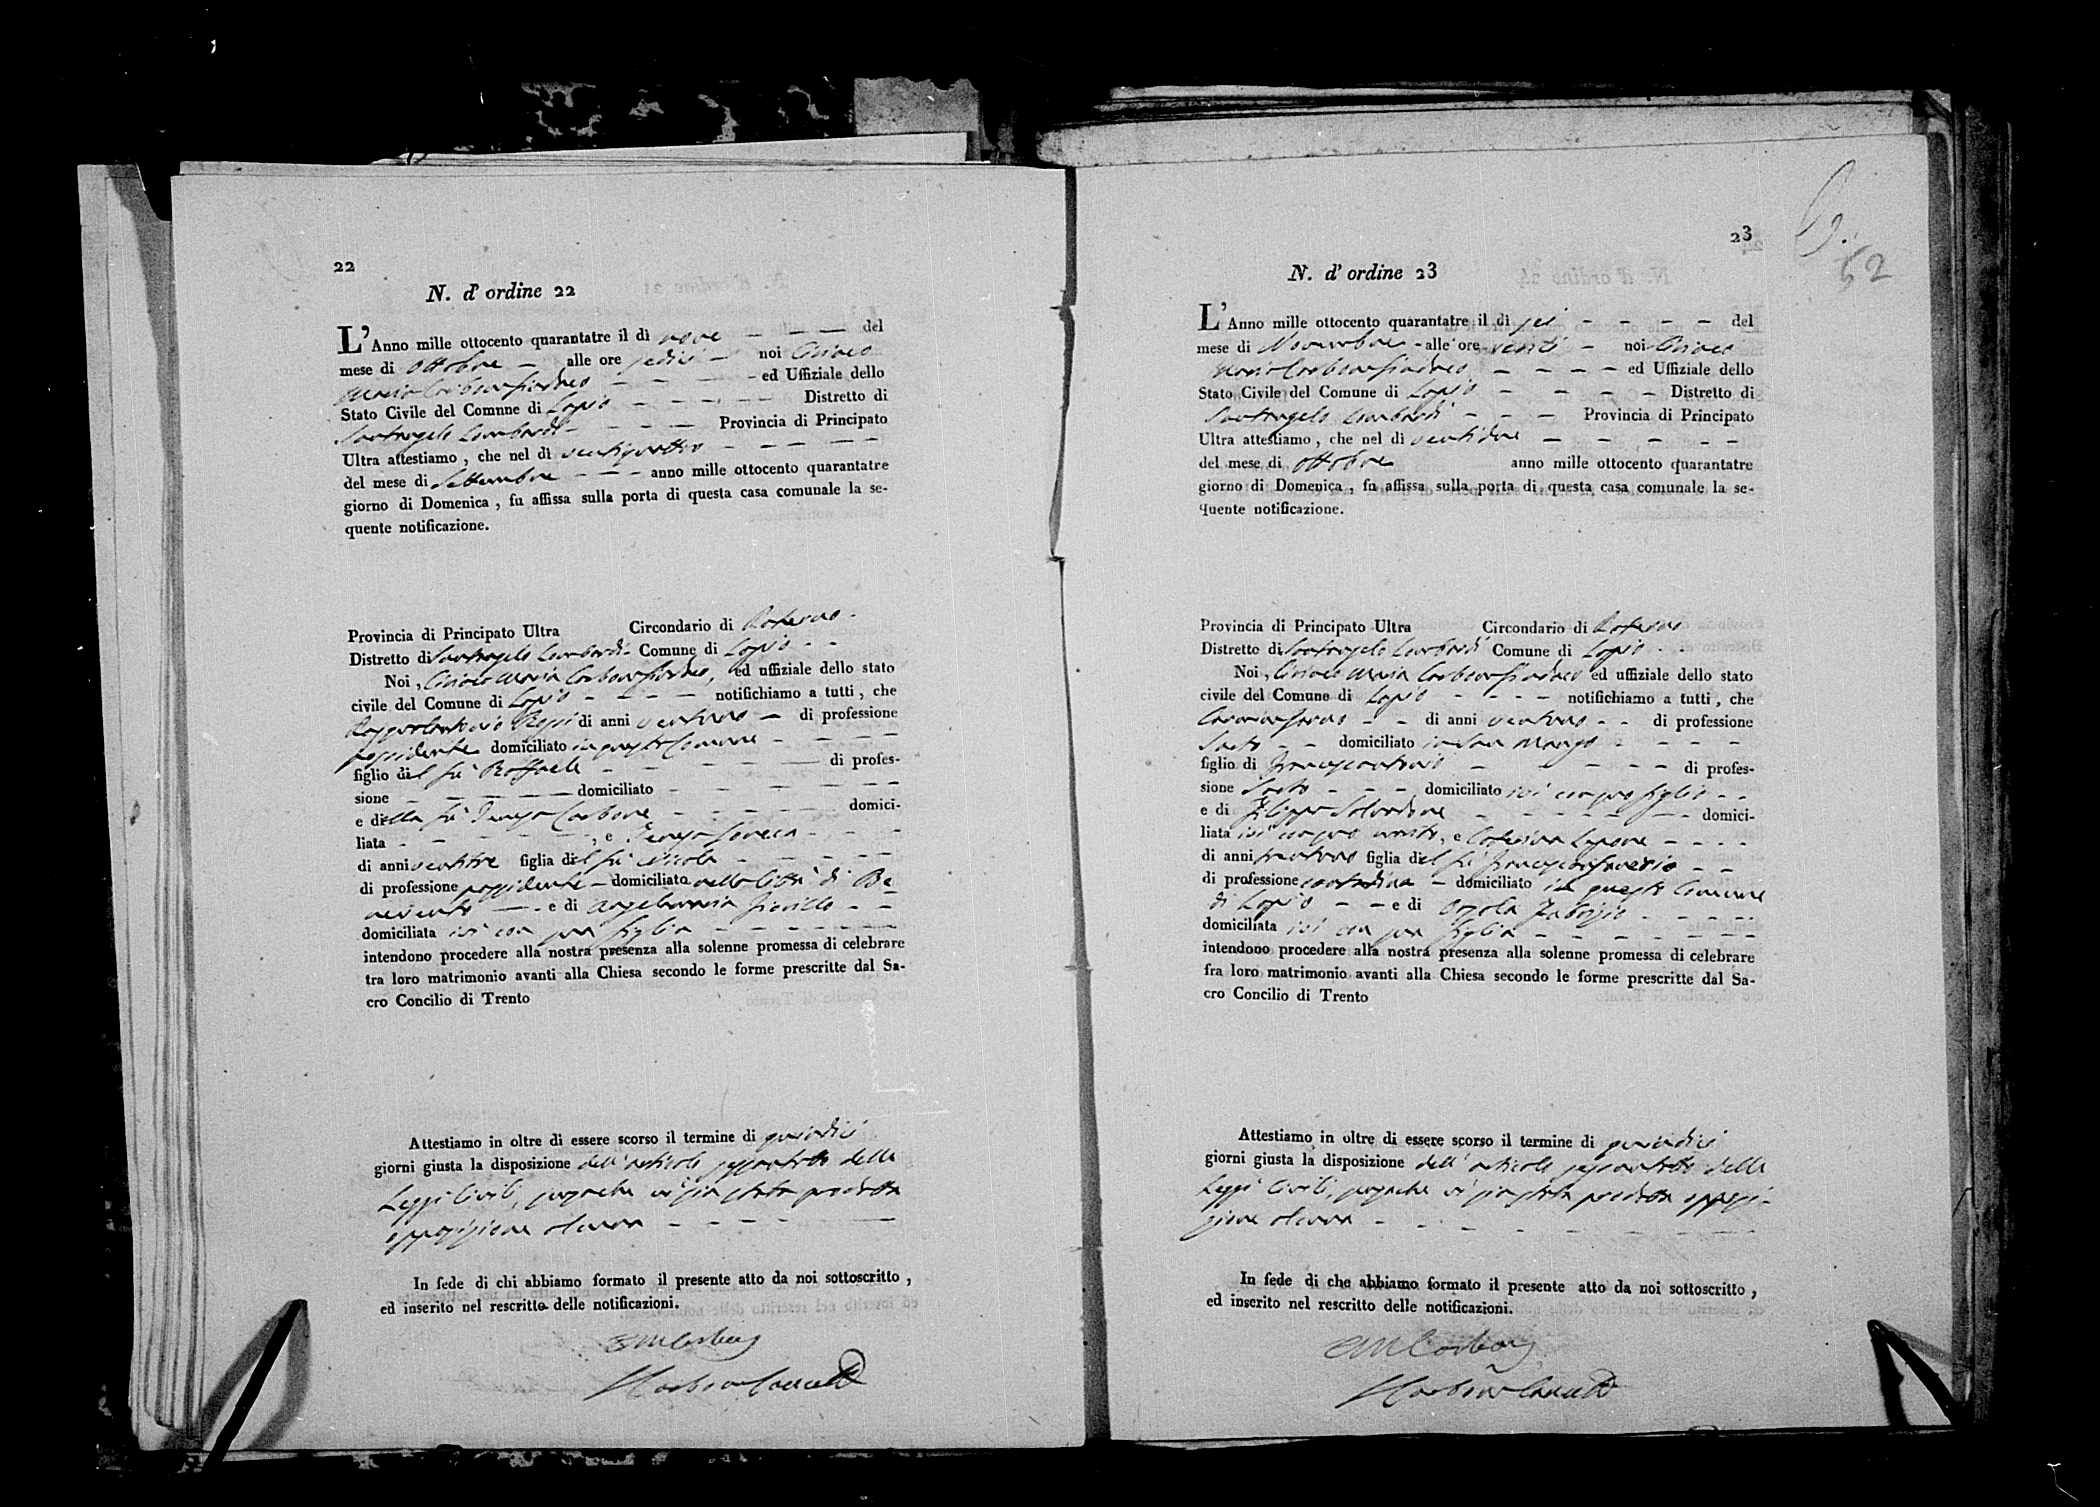 22
N. d' ordine 22
L'Anno mille ottocento quarantatre il dì nove del
mese di Ottobre alle ore sedici noi Ciriaco
Maria Carbone Sindaco ed Uffiziale dello
Stato Civile del Comnne di Lapio Distretto di
Santangelo Lombardi Provincia di Principato
Ultra attestiamo , che nel dì ventiquattro
del mese di Settembre anno mille ottocento quarantatre
giorno di Domenica , fu affissa sulla porta di questa casa comunale la se-
quente notificazione.
Provincia di Principato Ultra Circondario di
Distretto di Santangelo Lombardi Comune di Lapio
Noi , Ciriaco Maria Carbone Sindaco, ed uffiziale dello stato
civile del Comune di Lapio notifichiamo a tutti , che
di anni ventuno di professione
possidente domiciliato in questo Comune
figlio del fù Raffaele di profes-
sione domiciliato
e della fù Teresa Carbone domici-
liata , e Teresa
di anni ventitre figlia del fù Nicola
di professione possidente domiciliata nella Città di Be-
nevento e di Angelamaria
domiciliata ivi con sua figlia
intendono procedere alla nostra presenza alla solenne promessa di celebrare
tra loro matrimonio avanti alla Chiesa secondo le forme prescritte dal Sa-
cro Concilio di Trento
Attestiamo in oltre di essere scorso il termine di quindici
giorni giusta la disposizione dell' articolo sessantotto delle
Leggi Civili, senzache vi sia stata prodotta
opposizione alcuna
In fede di chi abbiamo formato il presente atto da noi sottoscritto ,
ed inserito nel rescritto delle notificazioni.
23
52
N. d' ordine 23
L'Anno mille ottocento quarantatre il dì sei del
mese di Novembre alle ore venti noi Ciriaco
Maria Carbone Sindaco ed Uffiziale dello
Stato Civile del Comune di Lapio Distretto di
Santangelo Lombardi Provincia di Principato
Ultra attestiamo , che nel dì ventidue
del mese di Ottobre anno mille ottocento quarantatre
giorno di Domenica , fu affissa sulla porta di questa casa comunale la se-
quente notificazione.
Provincia di Principato Ultra Circondario di
Distretto di Santangelo Lombardi Comune di Lapio
Noi , Ciriaco Maria Carbone Sindaco ed uffiziale dello stato
civile del Comune di Lapio notifichiamo a tutti , che
di anni ventuno di professione
Sarto domiciliato in San Mango
figlio di Francescantonio di profes-
sione Sarto domiciliato ivi con suo figlio
e di Filippa domici-
liata ivi con suo marito, e Caterina
di anni trentuno figlia del fù Francescosaverio
di professione contadina domiciliato in questo Comune
di Lapio e di Orsola Fabrizio
domiciliata ivi con sua figlia
intendono procedere alla nostra presenza alla solenne promessa di celebrare
fra loro matrimonio avanti alla Chiesa secondo le forme prescritte dal Sa-
cro Concilio di Trento
Attestiamo in oltre di essere scorso il termine di quindici
giorni giusta la disposizione dell' articolo sessantotto delle
Leggi Civili, senzache vi sia stata prodotta opposi-
zione alcuna
In fede di che abbiamo formato il presente atto da noi sottoscritto ,
ed inserito nel rescritto delle notificazioni.